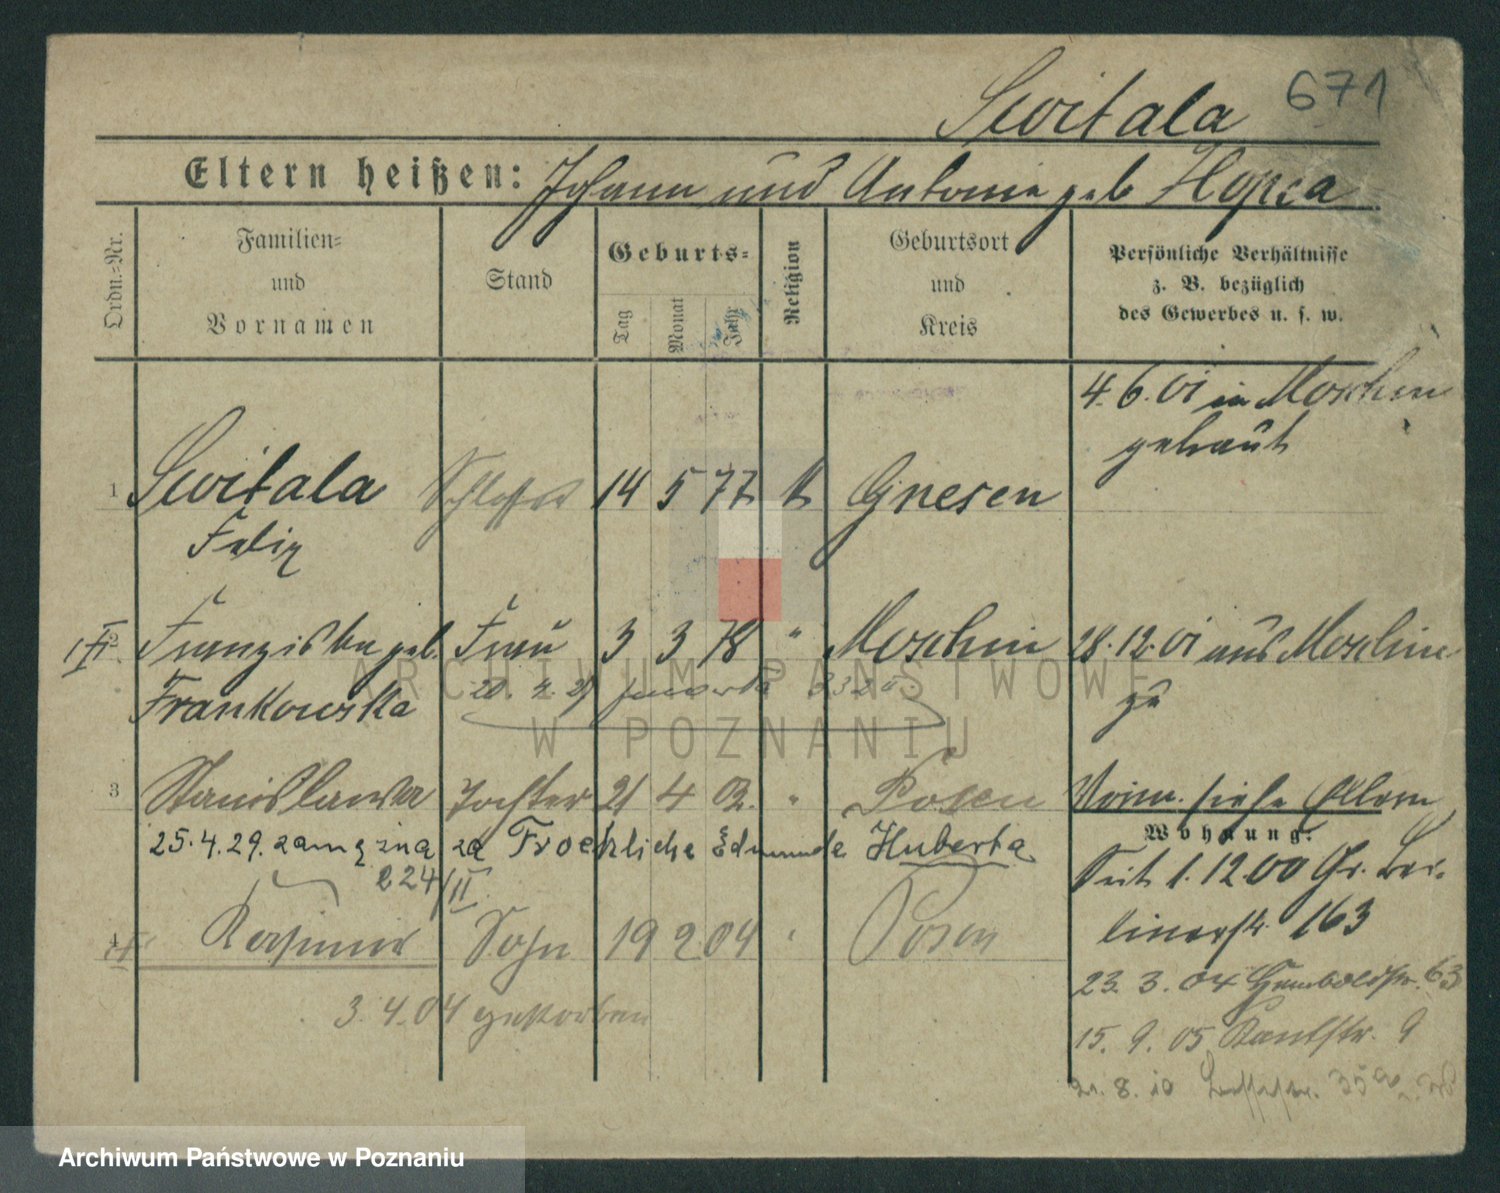 Switala 671
Eltern heißen: Johann und Antonie geb Hopca
Ordn.=Nr.
Familien=
und
Vornamen
Stand
Geburts=
Tag
Monat
Jahr
Religion
Geburtsort
und
Kreis
Persönliche Verhältnisse
z. B. bezüglich
des Gewerbes u. s. w.
4. 6. 01 in Moschin
getraut
1 Switala Schlosser 14 5 77 k Gnesen
Felix
2 Franziska geb. Frau 3 3 78 " Moschin 28. 12. 01 aus Moschin
Frankowska zu
3 Stanislawa Tochter 21 4 02. " Posen Vorm. siehe Eltern
25. 4. 29. zamężna za Froehliche Edmunda Huberta
224/II
Wohnung:
Seit 1. 12 00 Gr. Ber-
linerstr. 163
4 Kasimir Sohn 19 2 04 " Posen
3. 4. 04 gestorben
23. 3. 04 Humboldtstr. 63
15. 9. 05 Kantstr. 9
21. 8. 10
ARCHIWUM PAŃSTWOWE
W POZNANIU
Archiwum Państwowe w Poznaniu